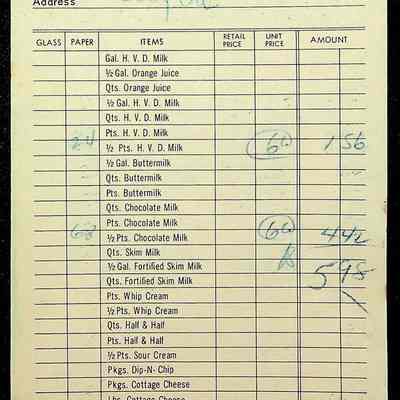 Address
GLASS PAPER ITEMS RETAIL PRICE UNIT PRICE AMOUNT
Gal. H. V. D. Milk
½ Gal. Orange Juice
Qts. Orange Juice
½ Gal. H. V. D. Milk
Qts. H. V. D. Milk
Pts. H. V. D. Milk
24 ½ Pts. H. V. D. Milk 1 56
½ Gal. Buttermilk
Qts. Buttermilk
Pts. Buttermilk
Qts. Chocolate Milk
Pts. Chocolate Milk
68 ½ Pts. Chocolate Milk 4 42
Qts. Skim Milk
½ Gal. Fortified Skim Milk 5 98
Qts. Fortified Skim Milk
Pts. Whip Cream
½ Pts. Whip Cream
Qts. Half & Half
Pts. Half & Half
½ Pts. Sour Cream
Pkgs. Dip-N-Chip
Pkgs. Cottage Cheese
Lbs. Cottage Cheese